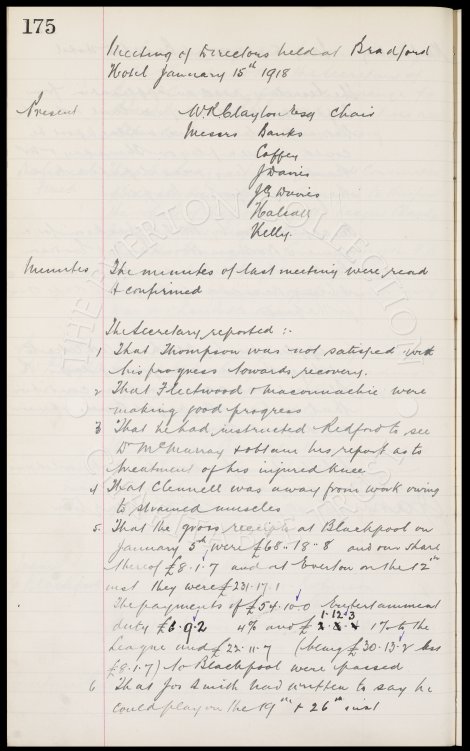 175
Meeting of Directors held at Bradford
Hotel January 15th 1918
Present W R Clayton Esq Chair
Messrs Banks
Coffey
J Davies
J G Davies
Halsall
Kelly.
Minutes The minutes of last meeting were read
& confirmed
The Secretary reported :-
1 That Thompson was not satisfied with
his progress towards recovery.
2 That Fleetwood & Maconnachie were
making good progress
3 That he had instructed Redford to see
Dr McMurray & obtain his report as to
treatment of his injured knee
4 That Clennell was away from work owing
to strained muscles
5 That the gross receipts at Blackpool on
January 5th were £68-18-8 and our share
thereof £8.1.7 and at Everton on the 12th
inst they were £231.17.1
The payments of £54.10.0 Entertainment
1.12.3
duty £6.9.2 4% and £ 1% to the
League and £22.11.7 (being £30.13.2 less
£8.1.7) to Blackpool were passed
6 That Jos Smith had written to say he
could play on the 19th & 26th inst
THE EVERTON COLLECTION